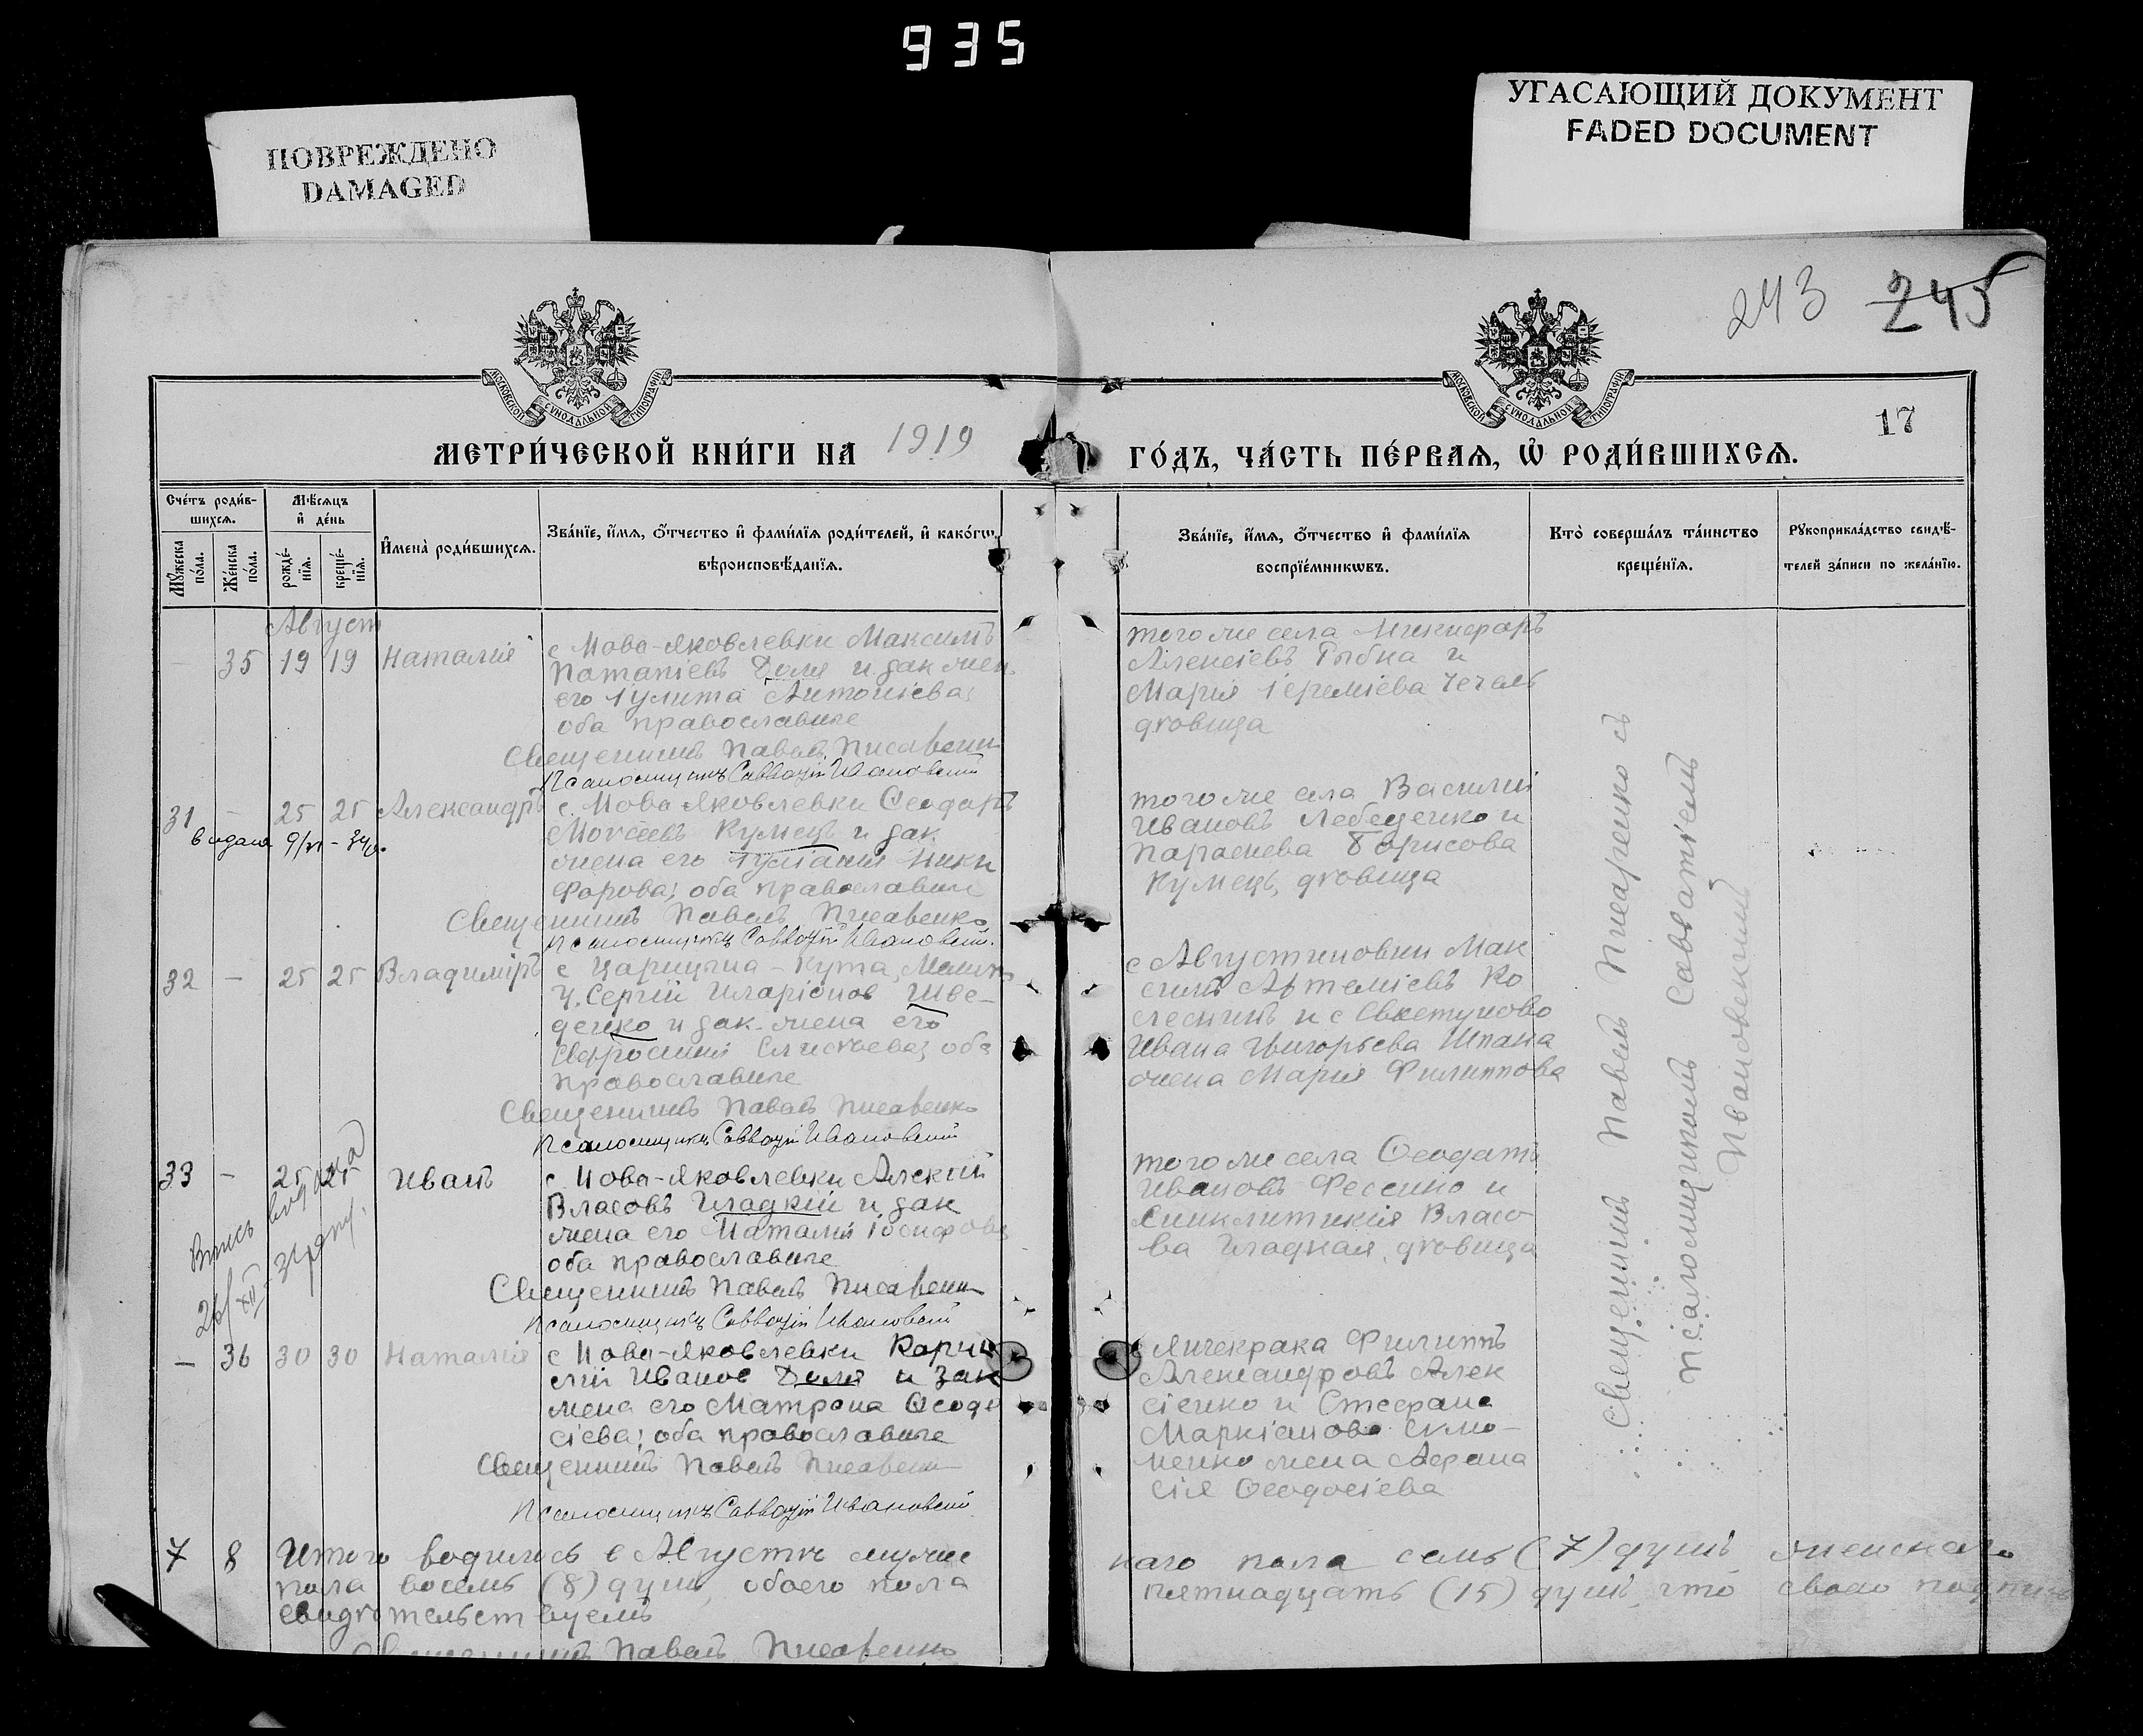 935
ПОВРЕЖДЕНО
DAMAGED
УГАСАЮЩИЙ ДОКУМЕНТ
FADED DOCUMENT
243 245
МОСКОВСКОЙ СѴНОДАЛЬНОЙ ТИПОГРАФІИ
МОСКОВСКОЙ СѴНОДАЛЬНОЙ ТИПОГРАФІИ
17
МЕТРИ́ЧЕСКОЙ КНИ́ГИ НА 1919
ГО́ДЪ, ЧА́СТЬ ПЕ́РВАЯ, Ѡ҆ РОДИ́ВШИХСЯ.
Счетъ роди́в-
шихся.
Мꙋжеска по́ла.
Же́нска по́ла.
Мѣ́сяцъ
и҆ де́нь
рожде́-
нїя.
креще́-
нїя.
И҆мена̀ роди́вшихся.
Зва́нїе, и҆́мя, ѻ҆́тчество и҆ фами́лїя роди́телей, и҆ како́гѡ
вѣроисповѣ́данїя.
Зва́нїе, и҆́мя, ѻ҆́тчество и҆ фами́лїя
воспрїе́мникѡвъ.
Кто̀ соверша́лъ та́инство
креще́нїя.
Рꙋкоприкла́дство свидѣ́-
телей за́писи по жела́нїю.
Август
— 35 19 19 Наталія
с Ново-Яковлевки Максимъ
Патапіевъ Доля и зак. жен.
его Іулита Антоніева;
оба православные
Священникъ Павелъ Писаренко
Псаломщикъ Савватій Ивановский
того же села Никифоръ
Алексіевъ Рыбка и
Марія Іереміева Чечель
дѣвица
31 — 25 25 Александръ
видана 9/VI - 34р.
с. Ново Яковлевки Ѳеодоръ
Моисеевъ Кумецъ и зак
жена его Іуліанія Ники
форова; оба православны
Священникъ Павелъ Писаренко
Псаломщикъ Савватій Ивановский
того же села Василій
Ивановъ Лебеденко и
Параскева Борисова
Кумецъ, дѣвица
32 — 25 25 Владиміръ
с Царицына-Кута
У. Сергій Иларіонов Шве-
денко и зак. жена его
Евфросинія Елисѣева; оба
православные
Священникъ Павелъ Писаренко
Псаломщикъ Савватій Ивановский
с Августиновки Мак
симъ Артеміевъ Ко
лесникъ и с
Ивана Григорьева Шпака
жена Марія Филиппова
33 — 25 25 Иванъ
Випись видана
26/XII - 34 року.
с. Ново-Яковлевки Алексій
Власовъ Гладкій и зак
жена его Наталія Іосифова
оба православные
Священникъ Павелъ Писаренко
Псаломщикъ Савватій Ивановский
того же села Ѳеодотъ
Ивановъ Фесенко и
Синклитикія Власо-
ва Гладкая, дѣвица
— 36 30 30 Наталія
с Ново-Яковлевки Корни
лій Иванов Доля и зак
жена его Матрона Ѳеодо
сіева; оба православные
Священникъ Павелъ Писаренко
Псаломщикъ Савватій Ивановский
с Янчекрака Филиппъ
Александровъ Алек
сіенко и Стефана
Маркіанова
ненко жена Афана
сія Ѳеодосіева
Священникъ Павелъ Писаренко съ
псаломщикомъ Савватіемъ
Ивановскимъ
7 8 Итого родилось в Августѣ мужес
каго пола семь (7) душъ женскаго
пола восемь (8) душъ, обоего пола
пятнадцать (15) душъ, что своею подписью
свидѣтельствуемъ
Священникъ Павелъ Писаренко